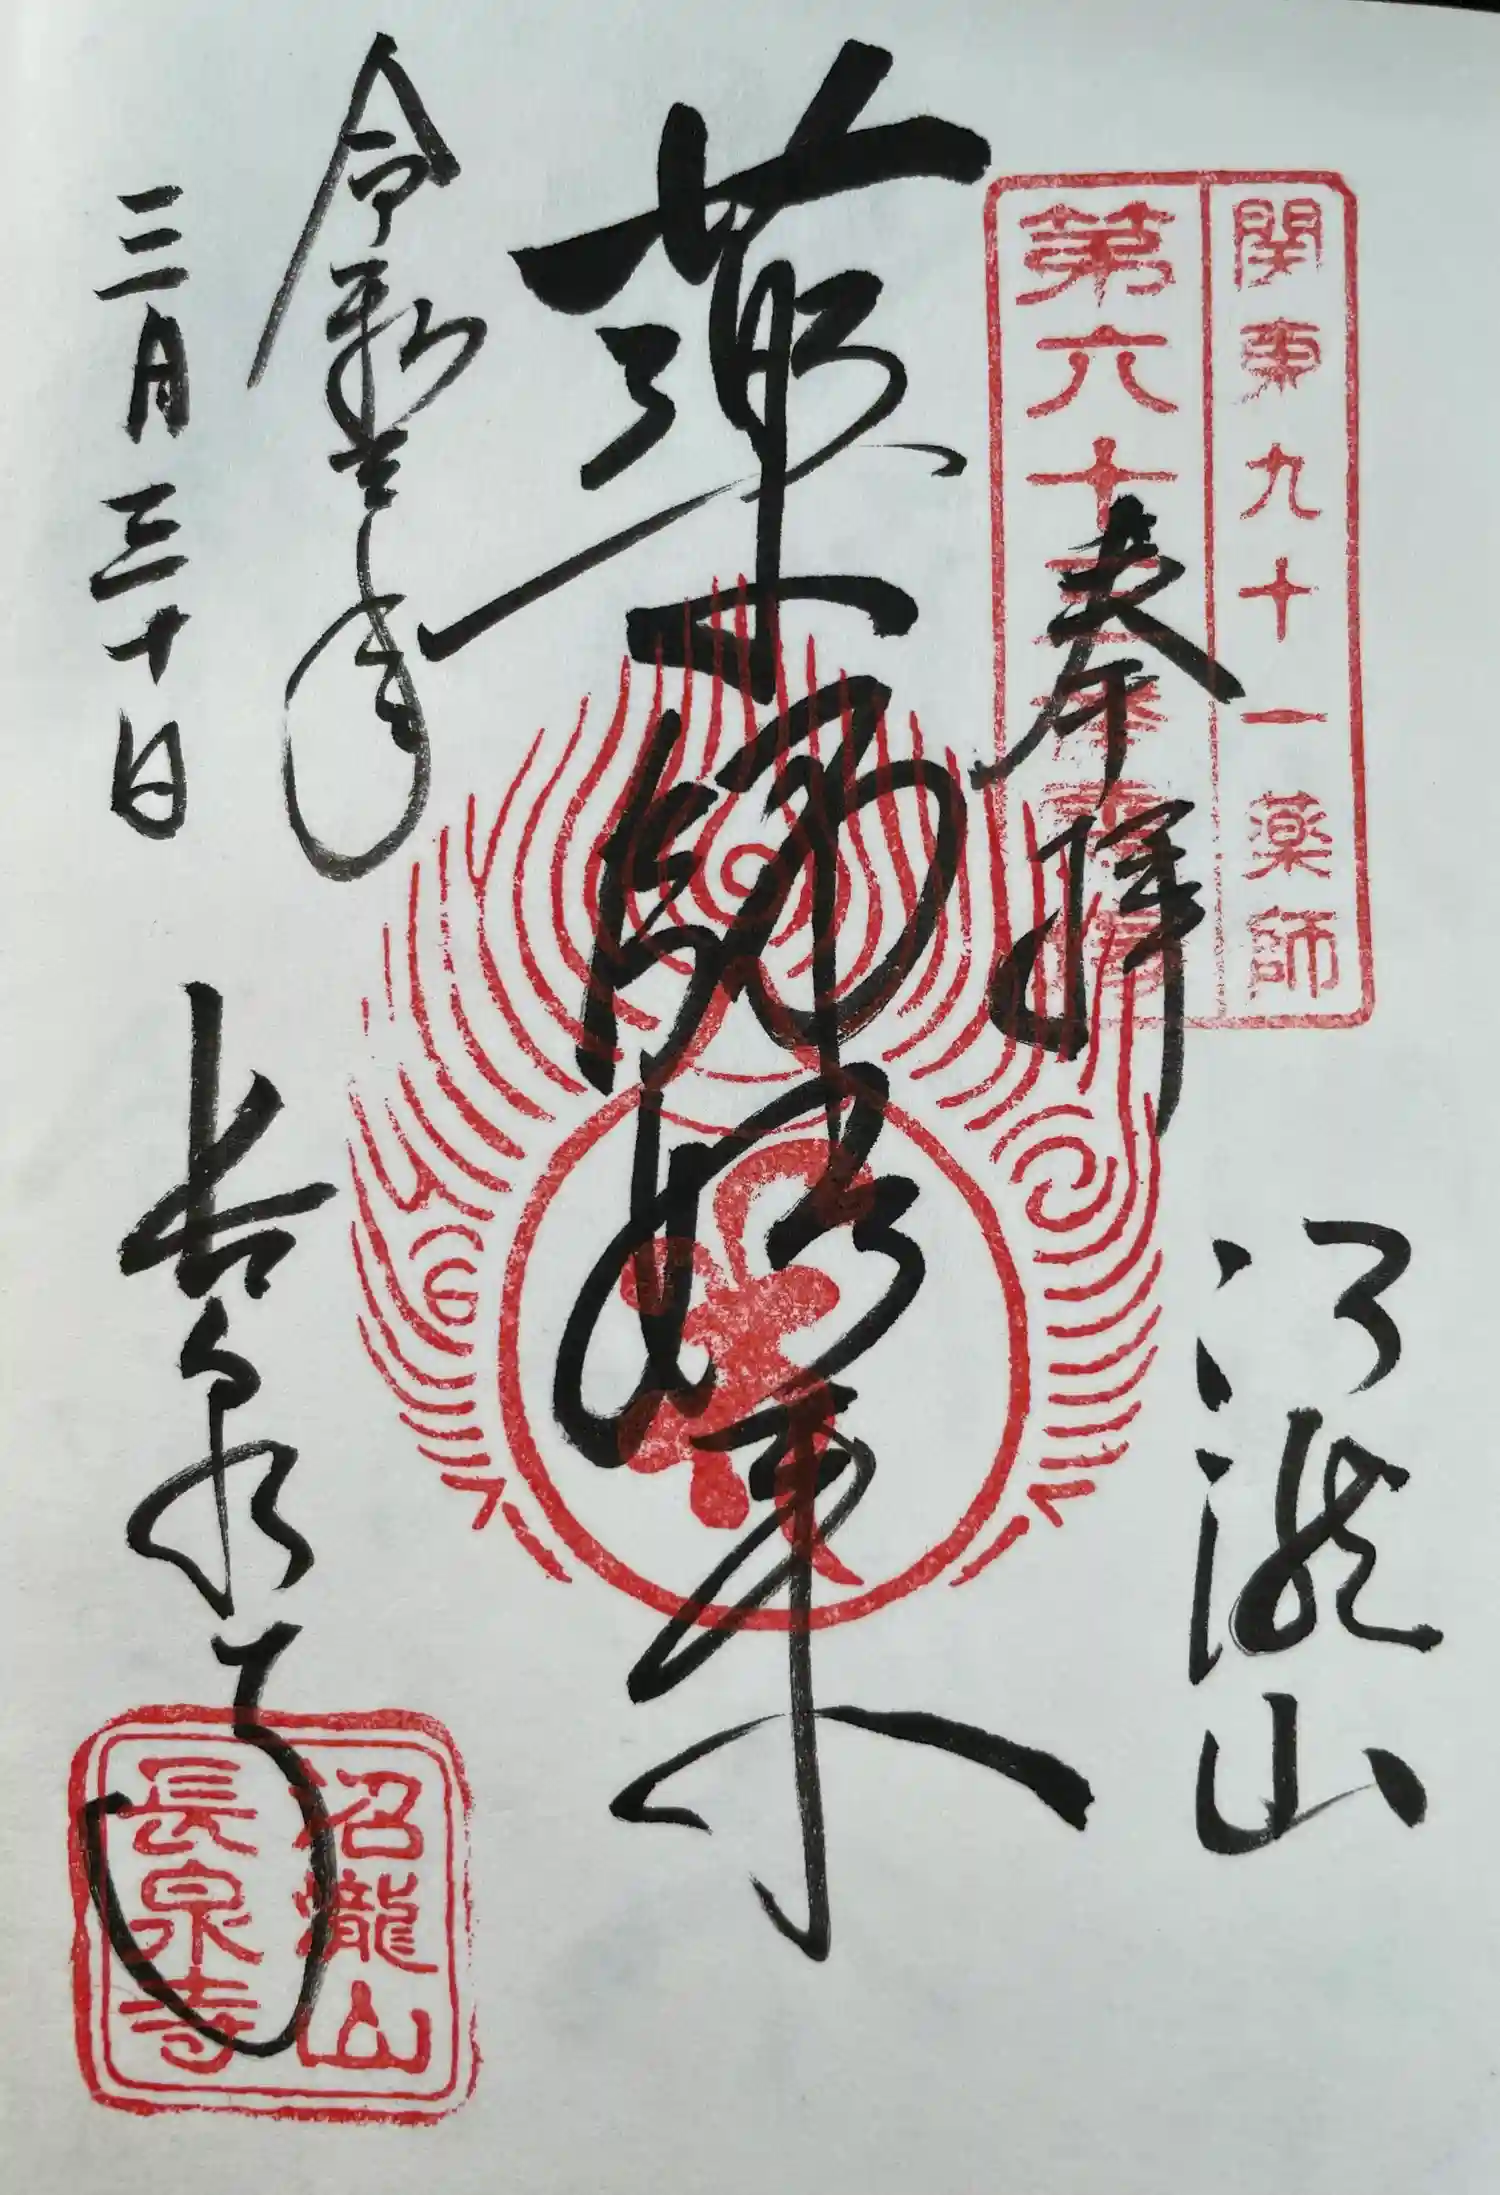 関東九十一薬師
第六十
奉拝
沼瀧山
薬師如来
令和年
三月三十日
長泉寺
沼瀧山
長泉寺